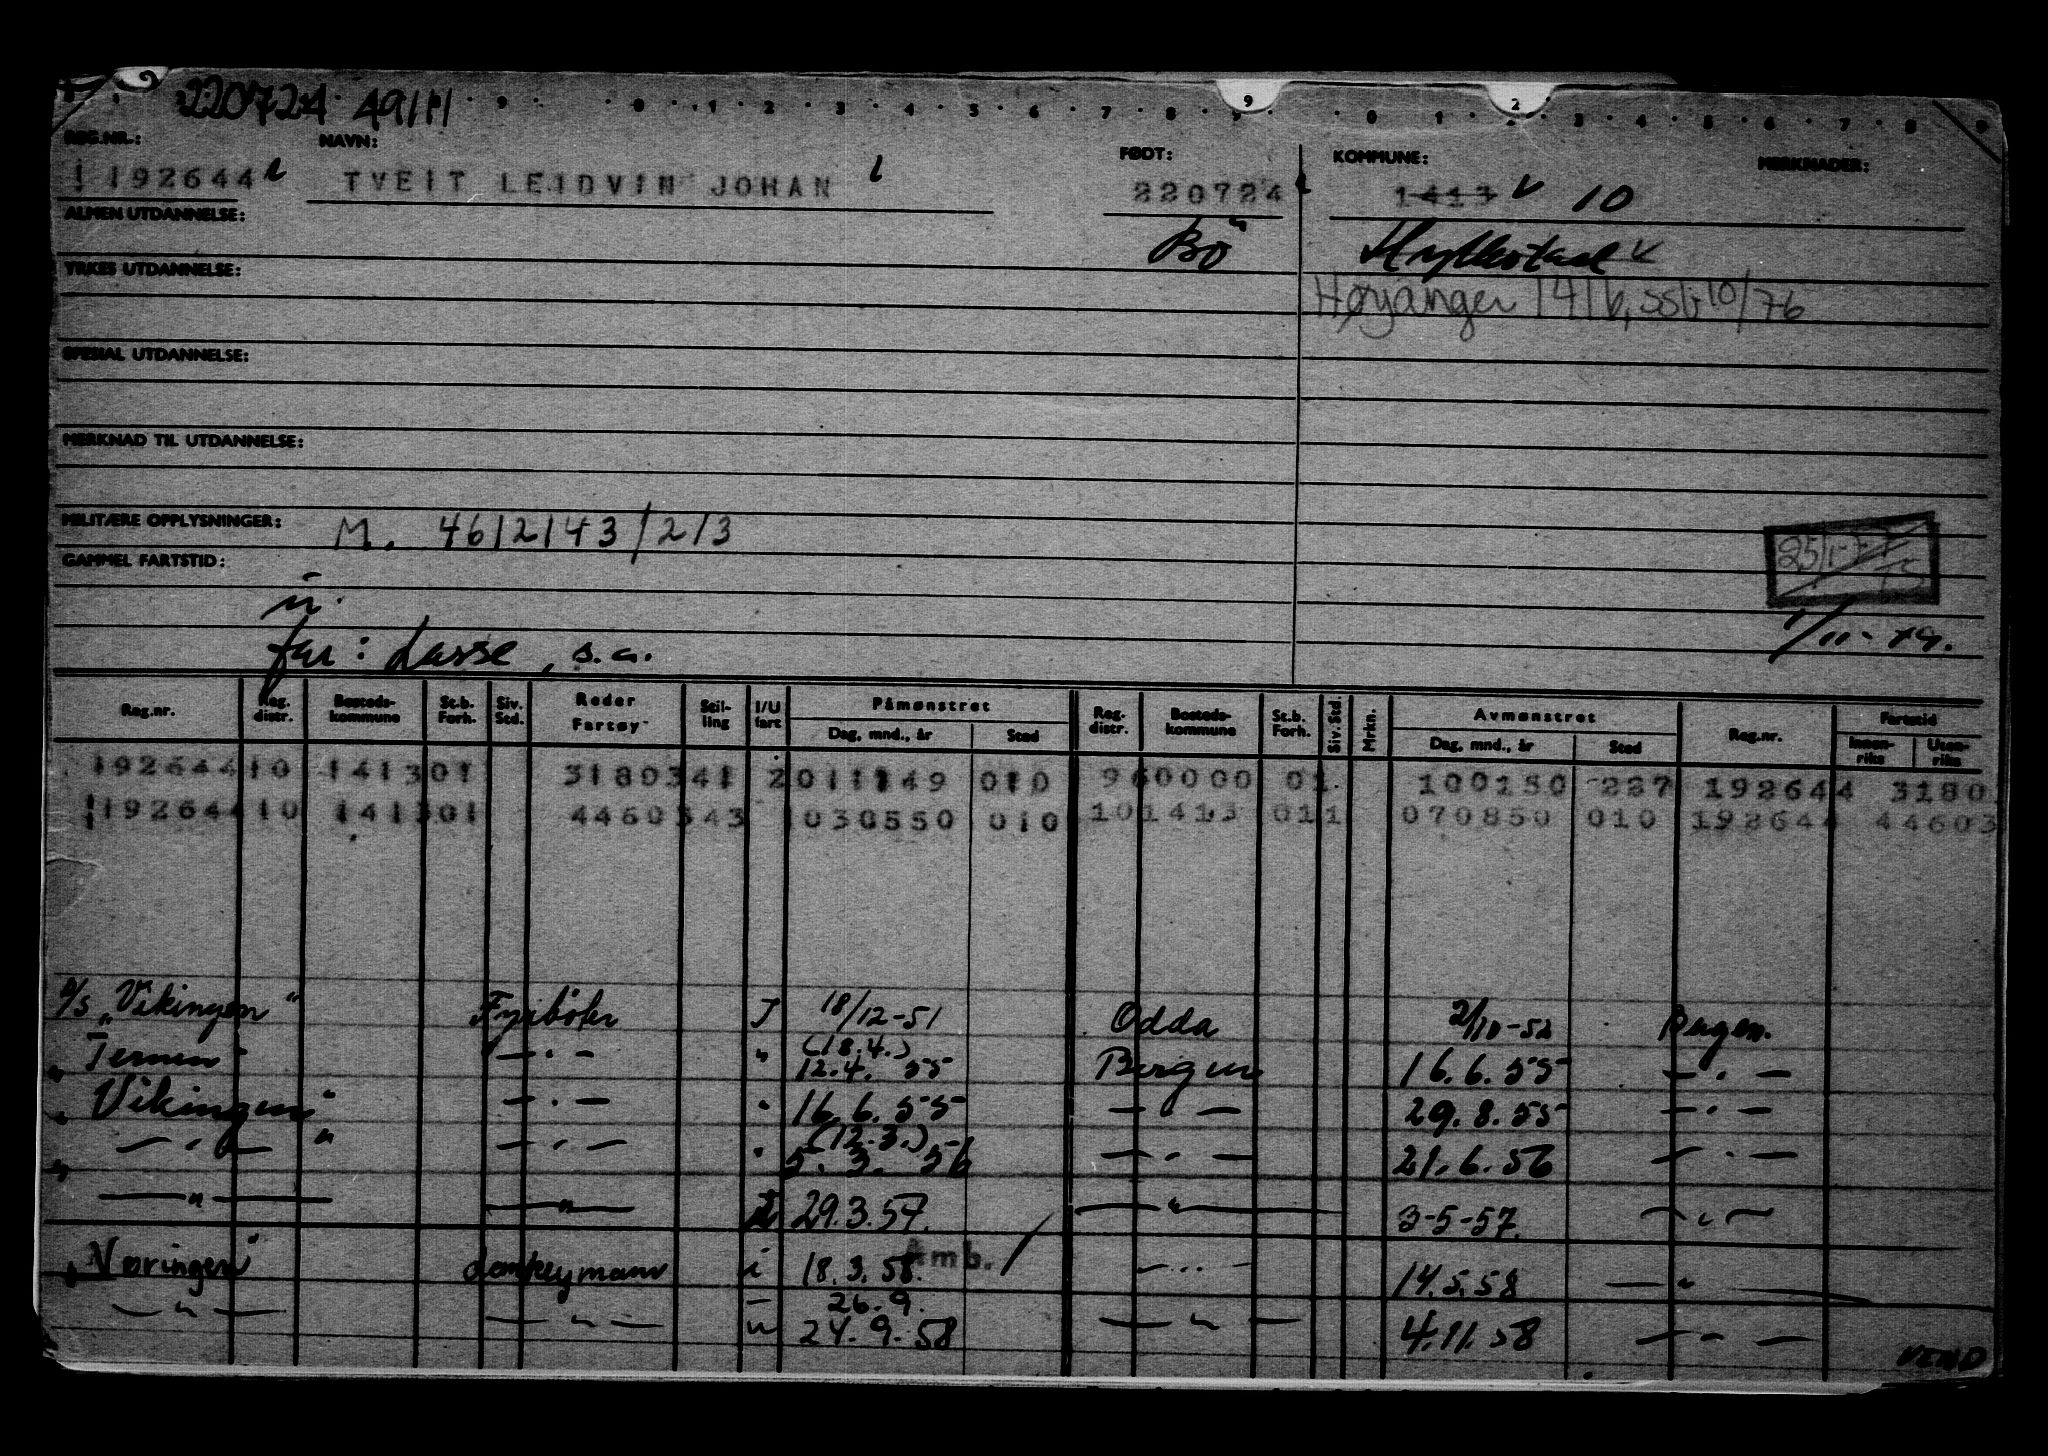 220724 49111
9 0 1 2 3 4 5 6 7 8 9 9 0 1 2 3 4 5 6 7 8 9
REG.NR.: NAVN: FØDT: KOMMUNE: MERKNADER:
192644 TVEIT LEIDVIN JOHAN 220724 1413 10
ALMEN UTDANNELSE: Bö Hyllestad
YRKES UTDANNELSE:
Høyanger 1416, sst. 10/76
SPESIAL UTDANNELSE:
MERKNAD TIL UTDANNELSE:
MILITÆRE OPPLYSNINGER: M. 4612143/213
GAMMEL FARTSTID:
far: Lasse, s.a.
1/11-74.
Reg.nr. Reg. distr. Bosteds-kommune St.b. Forh. Siv. Std. Reder Fartøy Stil-ling I/U fart Påmønstret Dag, mnd., år Sted Reg. distr. Bosteds-kommune St.b. Forh. Siv. Std. Mrkn. Avmønstret Dag, mnd., år Sted Reg.nr. Fartstid Innen-riks Uten-riks
19264410 141301 3180341 2 011149 010 960000 01 100150 227 192644 3180
19264410 141301 4460343 030550 010 101413 011 070850 010 192644 44603
D/S "Vikingen" Fyrbøter I 18/12-51 Odda 2/10-52 Bergen.
" Ternen" — " — " (18.4.) 12.4. 55 Bergen 16.6.55 — " —
" Vikingen" — " — " 16.6.55 — " — 29.8.55 — " —
" — " — " — " — " (12.3.) 5.3.56 — " — 21.6.56 — " —
— " — — " — 29.3.57. — " — 3-5-57. — " —
" Næringen" donkeymann i 18.3.58. Amb. — " — 14.5.58 — " —
— " — — " — 26.9. 24.9.58 — " — 4.11.58 — " —
VEND